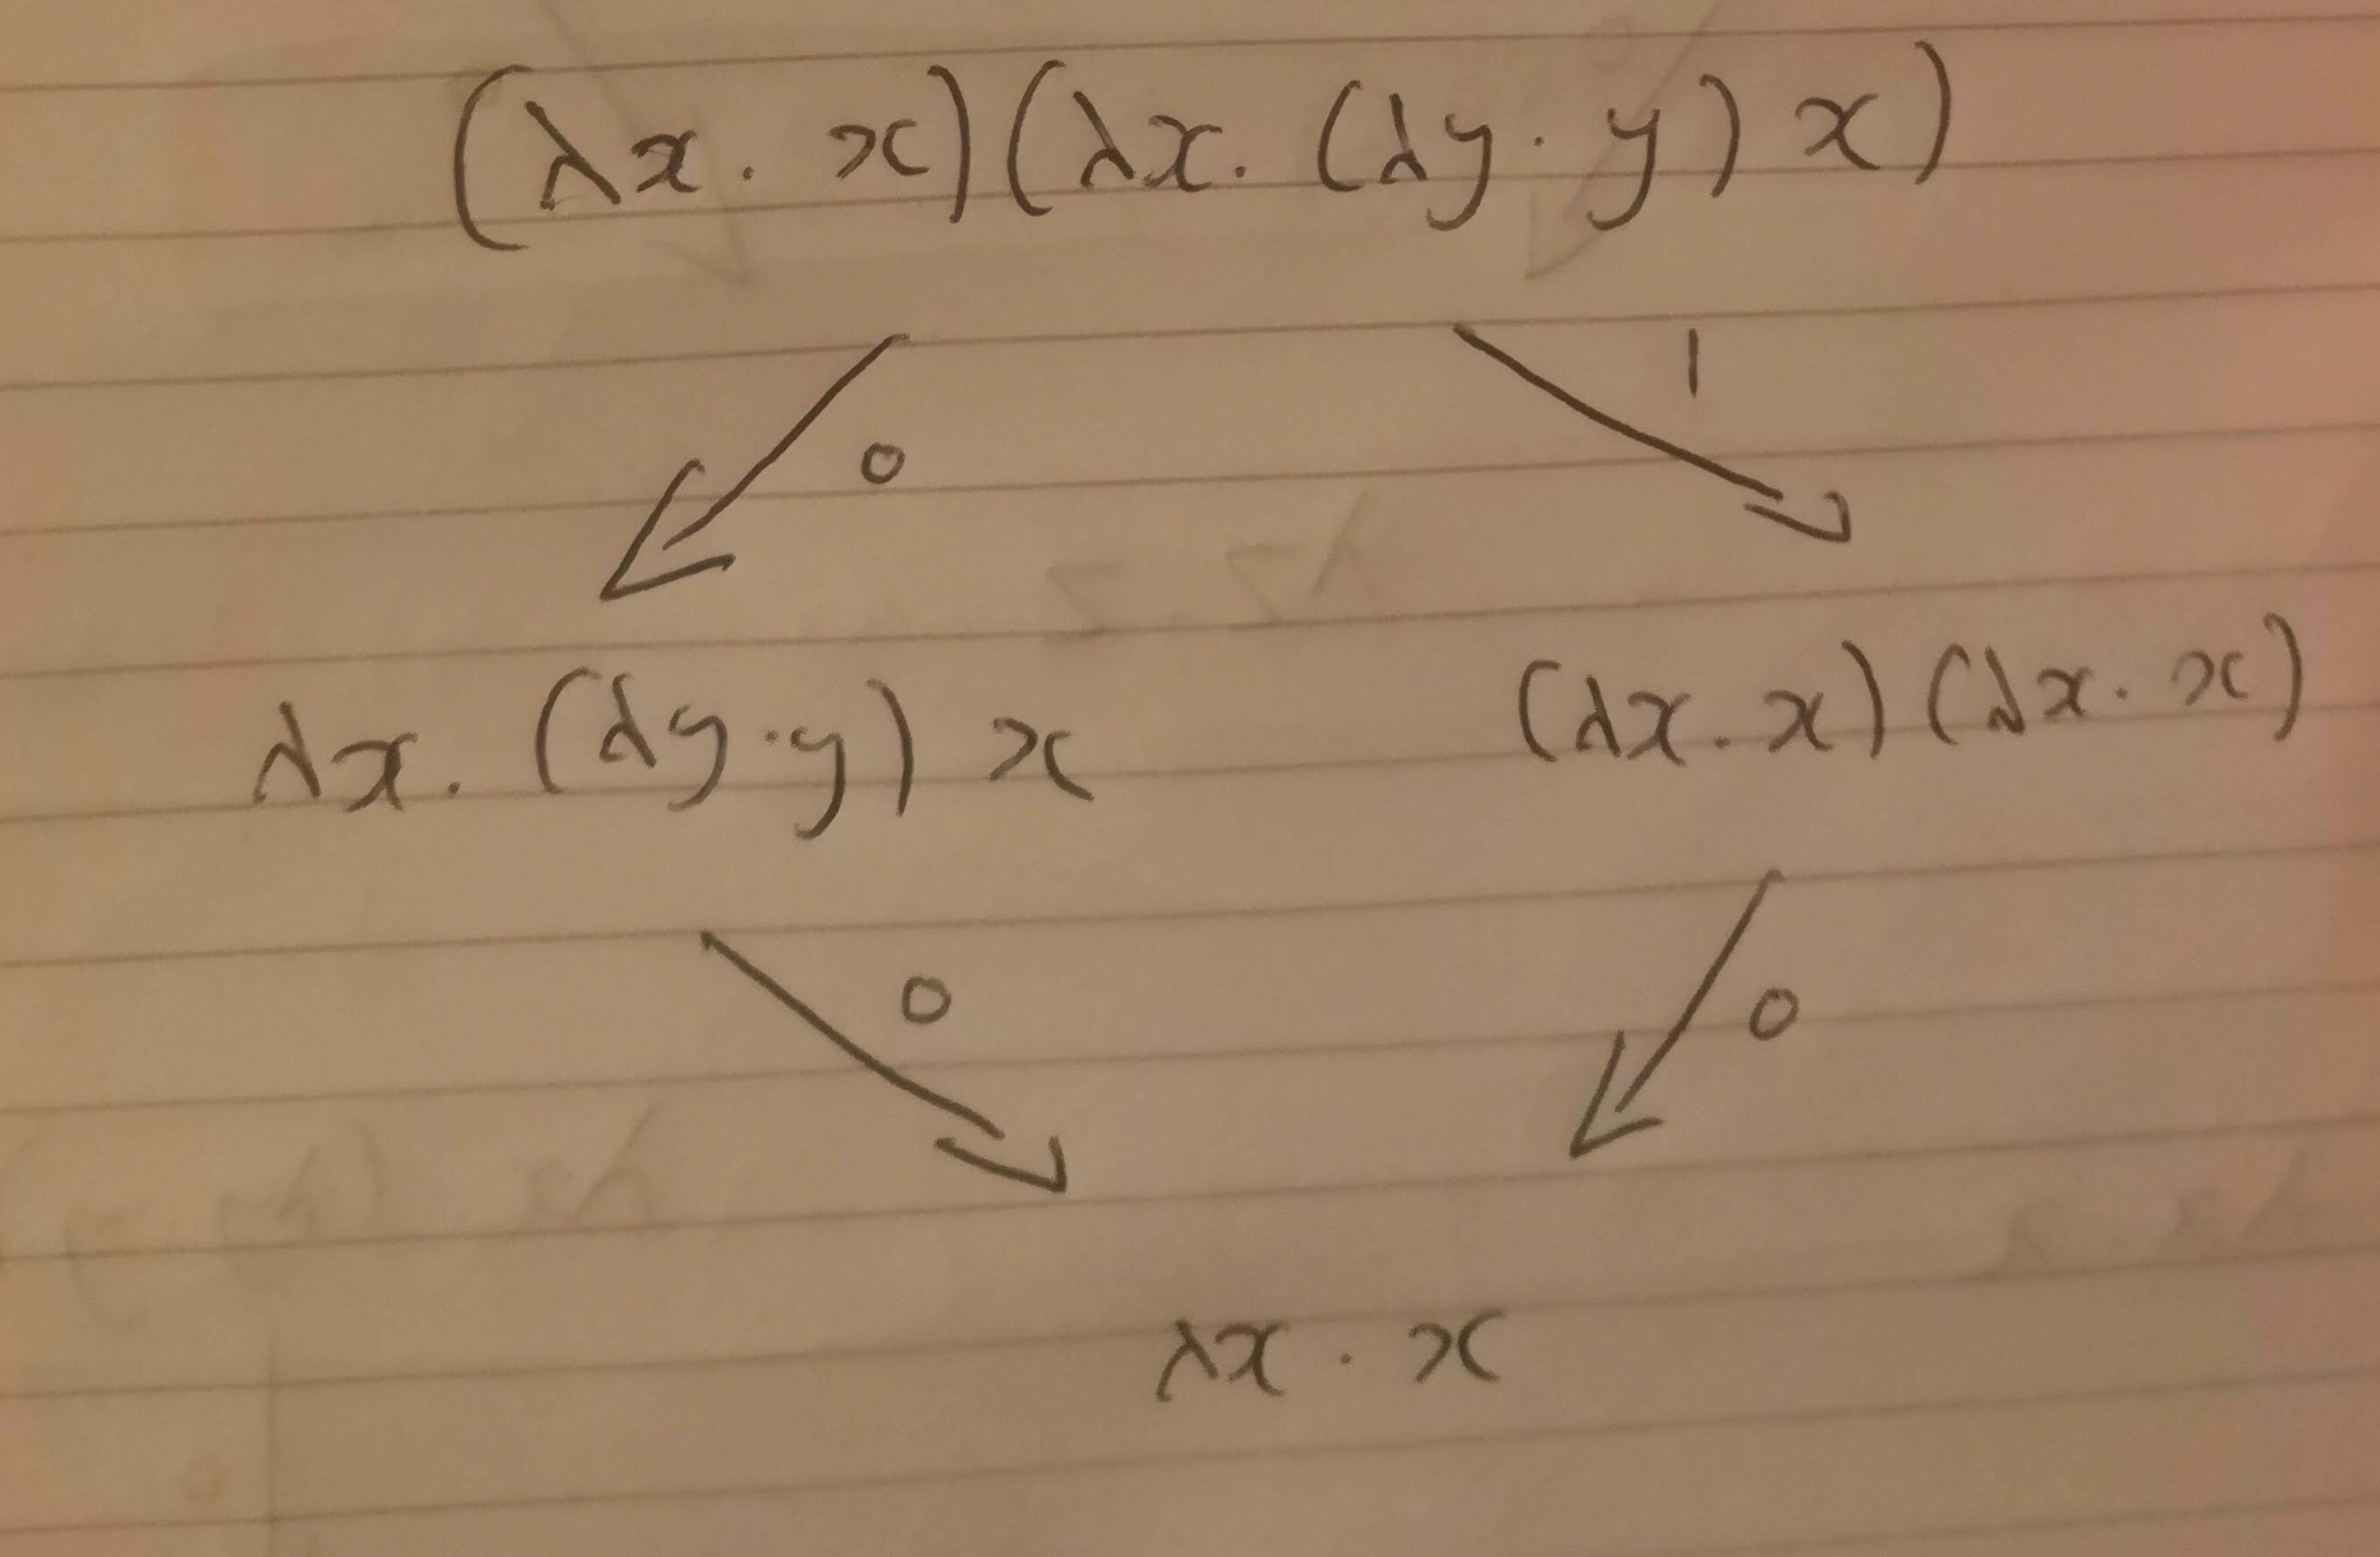 (λx. x)(λx. (λy. y) x)
0 1
λx. (λy.y) x (λx. x)(λx. x)
0 0
λx. x